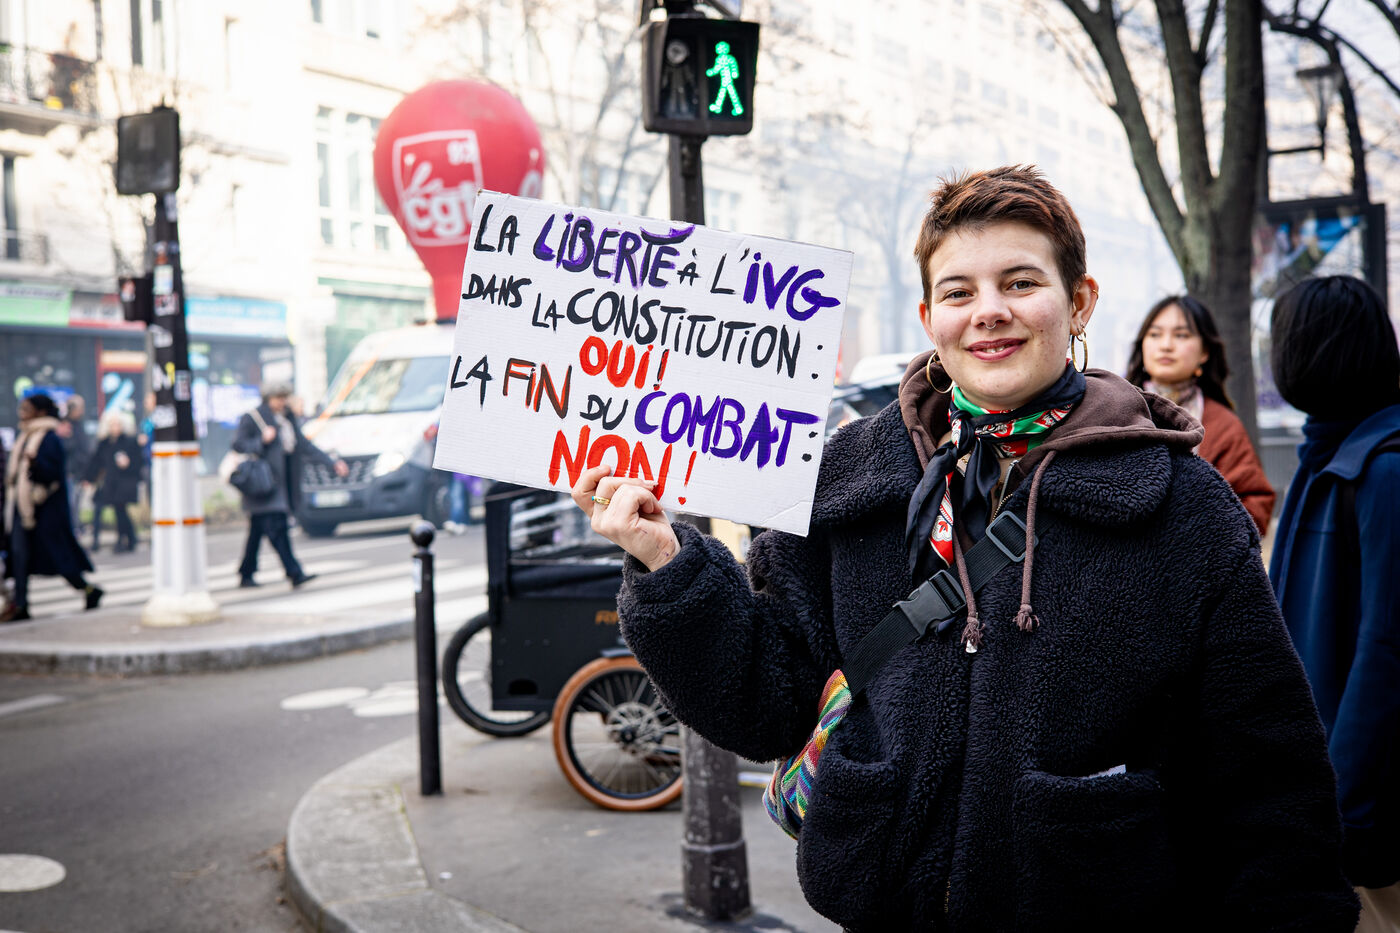 93
cgt
LA LIBERTÉ À L'IVG
DANS LA CONSTITUTION :
OUI !
LA FIN DU COMBAT :
NON !